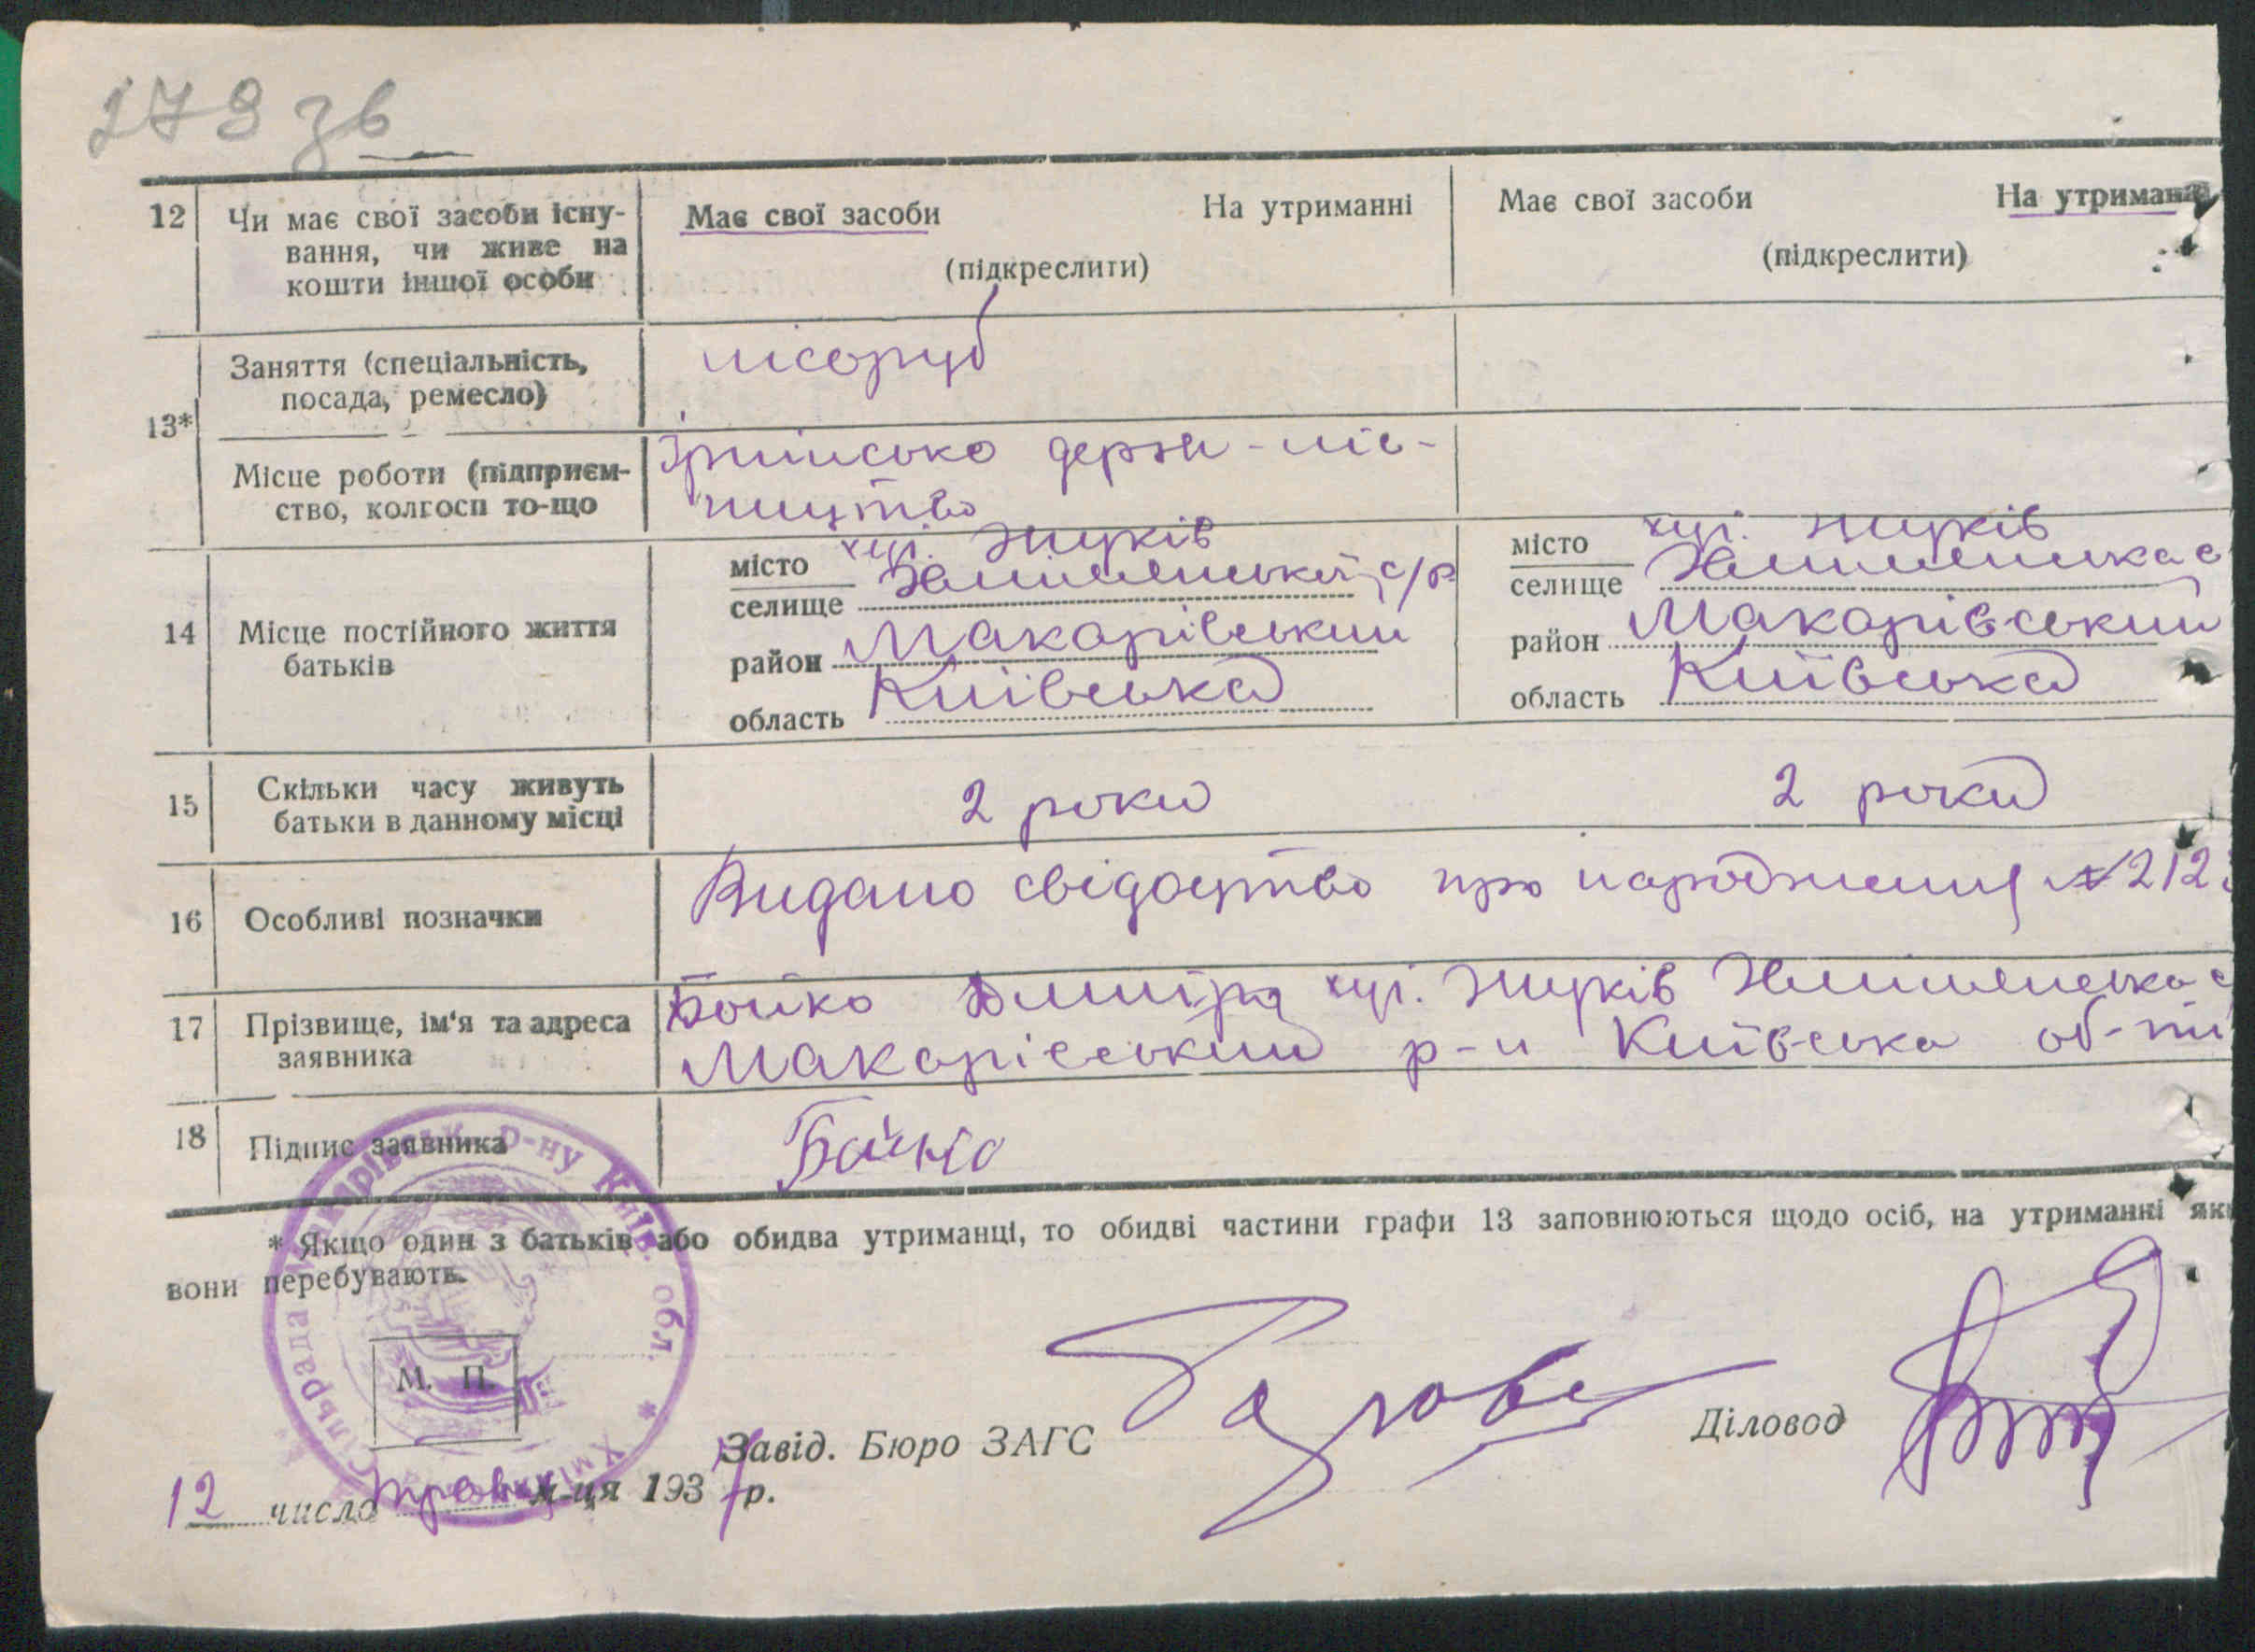 173 зв
12 Чи має свої засоби існу-
вання, чи живе на
кошти іншої особи
Має свої засоби На утриманні
(підкреслити)
Має свої засоби На утриманні
(підкреслити)
13*
Заняття (спеціальність,
посада, ремесло)
лісоруб
Місце роботи (підприєм-
ство, колгосп то-що
держ-ліс-
ництво
14 Місце постійного життя
батьків
місто хут. Жуків
селище с/р
район Макарівський
область Київська
місто хут. Жуків
селище
район Макарівський
область Київська
15 Скільки часу живуть
батьки в данному місці
2 роки 2 роки
16 Особливі позначки
Видано свідоцтво про народження №212
17 Прізвище, ім'я та адреса
заявника
Бойко хут. Жуків
Макарівський р-н Київська об-ти
18 Підпис заявника
Бойко
* Якщо один з батьків або обидва утриманці, то обидві частини графи 13 заповнюються щодо осіб, на утриманні як
вони перебувають.
Сільрада Макарівськ. р-ну Київ. обл. *
М. П.
Завід. Бюро ЗАГС
Діловод
12 число травня м-ця 1937 р.